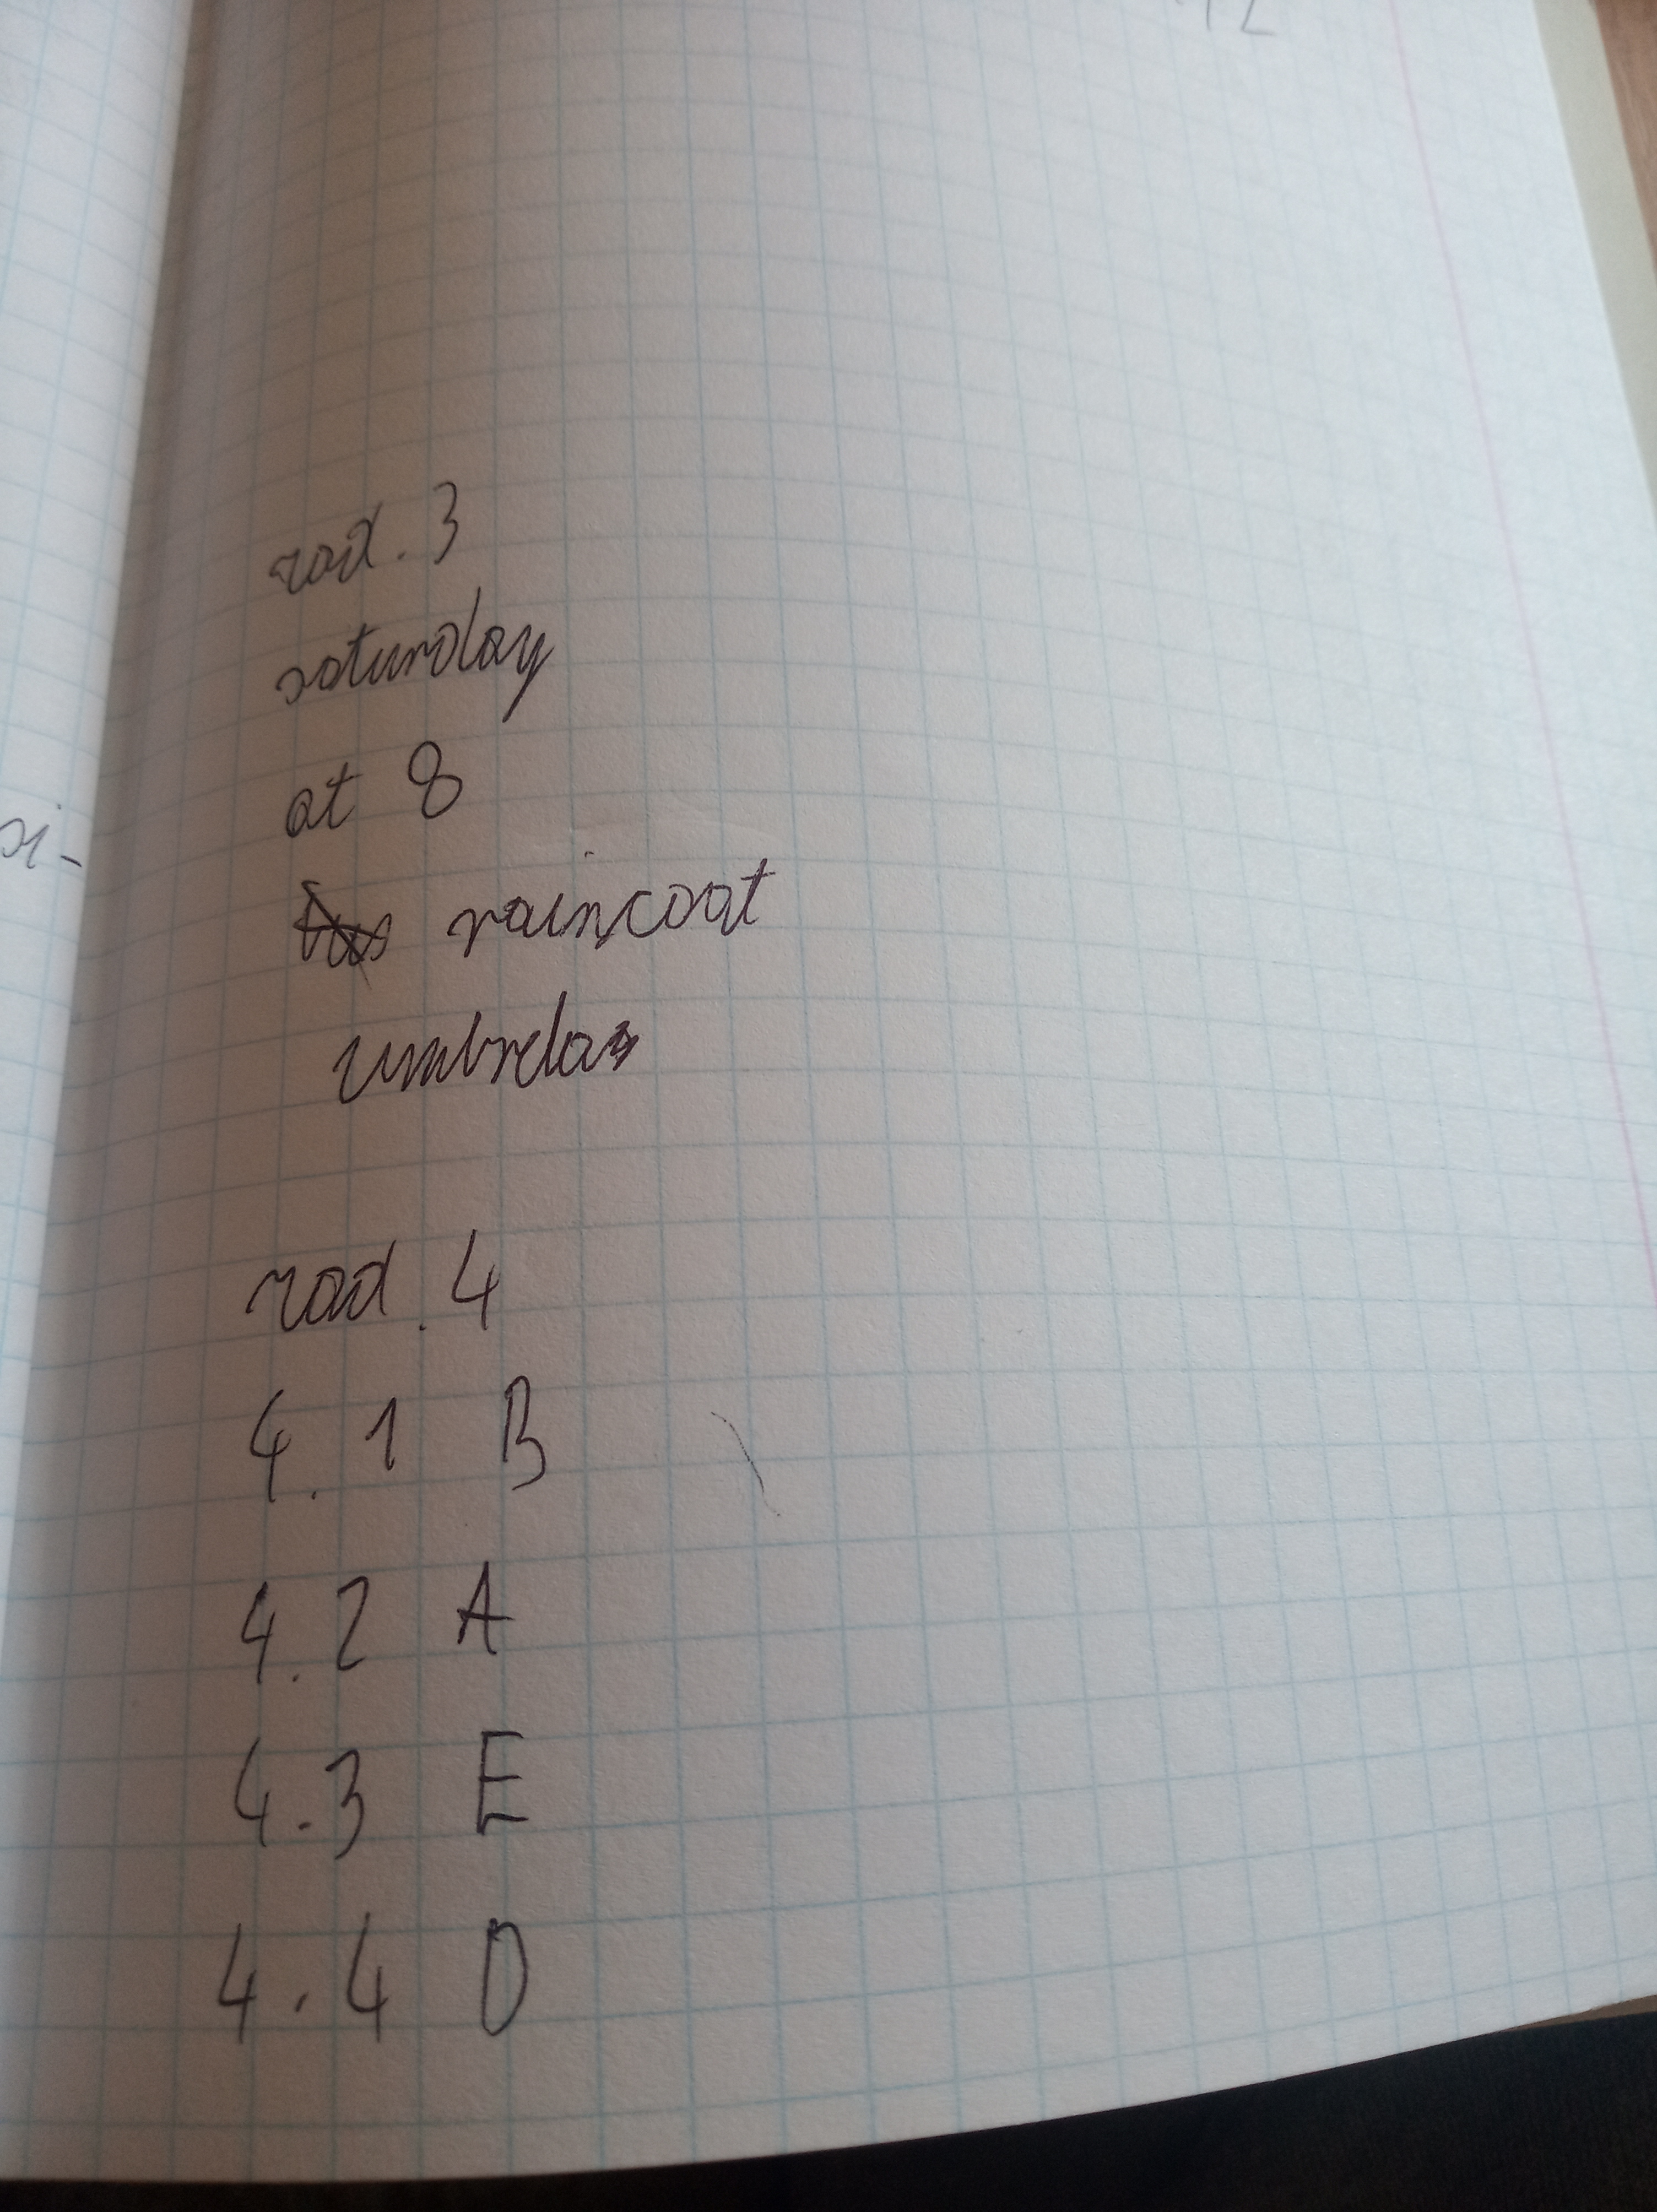 zad. 3
saturday
at 8
raincoat
umbrela
zad. 4
4.1 B
4.2 A
4.3 E
4.4 D